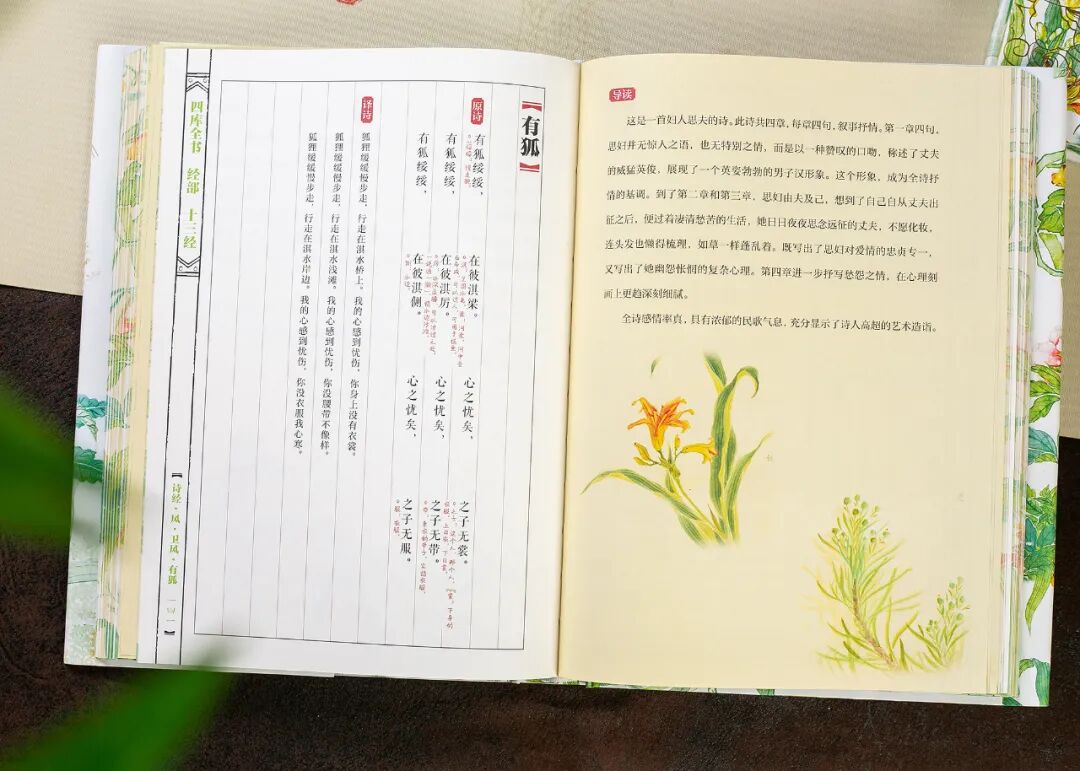 导读
这是一首妇人思夫的诗。此诗共四章，每章四句，叙事抒情。第一章四句，
思妇并无惊人之语，也无特别之情，而是以一种赞叹的口吻，称述了丈夫
的威猛英俊，展现了一个英姿勃勃的男子汉形象。这个形象，成为全诗抒
情的基调。到了第二章和第三章，思妇由夫及己，想到了自己自从丈夫出
征之后，便过着凄清愁苦的生活，她日日夜夜思念远征的丈夫，不愿化妆，
连头发也懒得梳理，如草一样蓬乱着。既写出了思妇对爱情的忠贞专一，
又写出了她幽怨怅惘的复杂心理。第四章进一步抒写愁怨之情，在心理刻
画上更趋深刻细腻。
全诗感情率真，具有浓郁的民歌气息，充分显示了诗人高超的艺术造诣。
【有狐】
原诗
有狐绥绥，在彼淇梁。心之忧矣，之子无裳。
有狐绥绥，在彼淇厉。心之忧矣，之子无带。
有狐绥绥，在彼淇侧。心之忧矣，之子无服。
译诗
狐狸缓缓慢步走，行走在淇水桥上。我的心感到忧伤，你身上没有衣裳。
狐狸缓缓慢步走，行走在淇水浅滩。我的心感到忧伤，你没腰带不像样。
狐狸缓缓慢步走，行走在淇水岸边。我的心感到忧伤，你没衣服我心寒。
四库全书 经部 十三经
【诗经·风·卫风·有狐